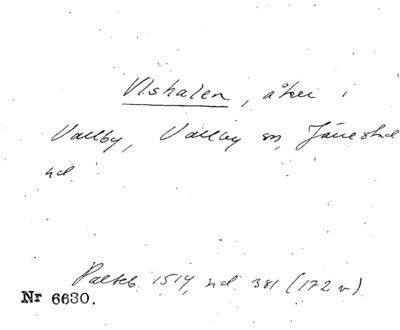 Vlshalen, åker i
Vallby, Vallby sn, Järrestad
hd.
Palteb. 1514, sid 381 (172 v)
Nr 6630.